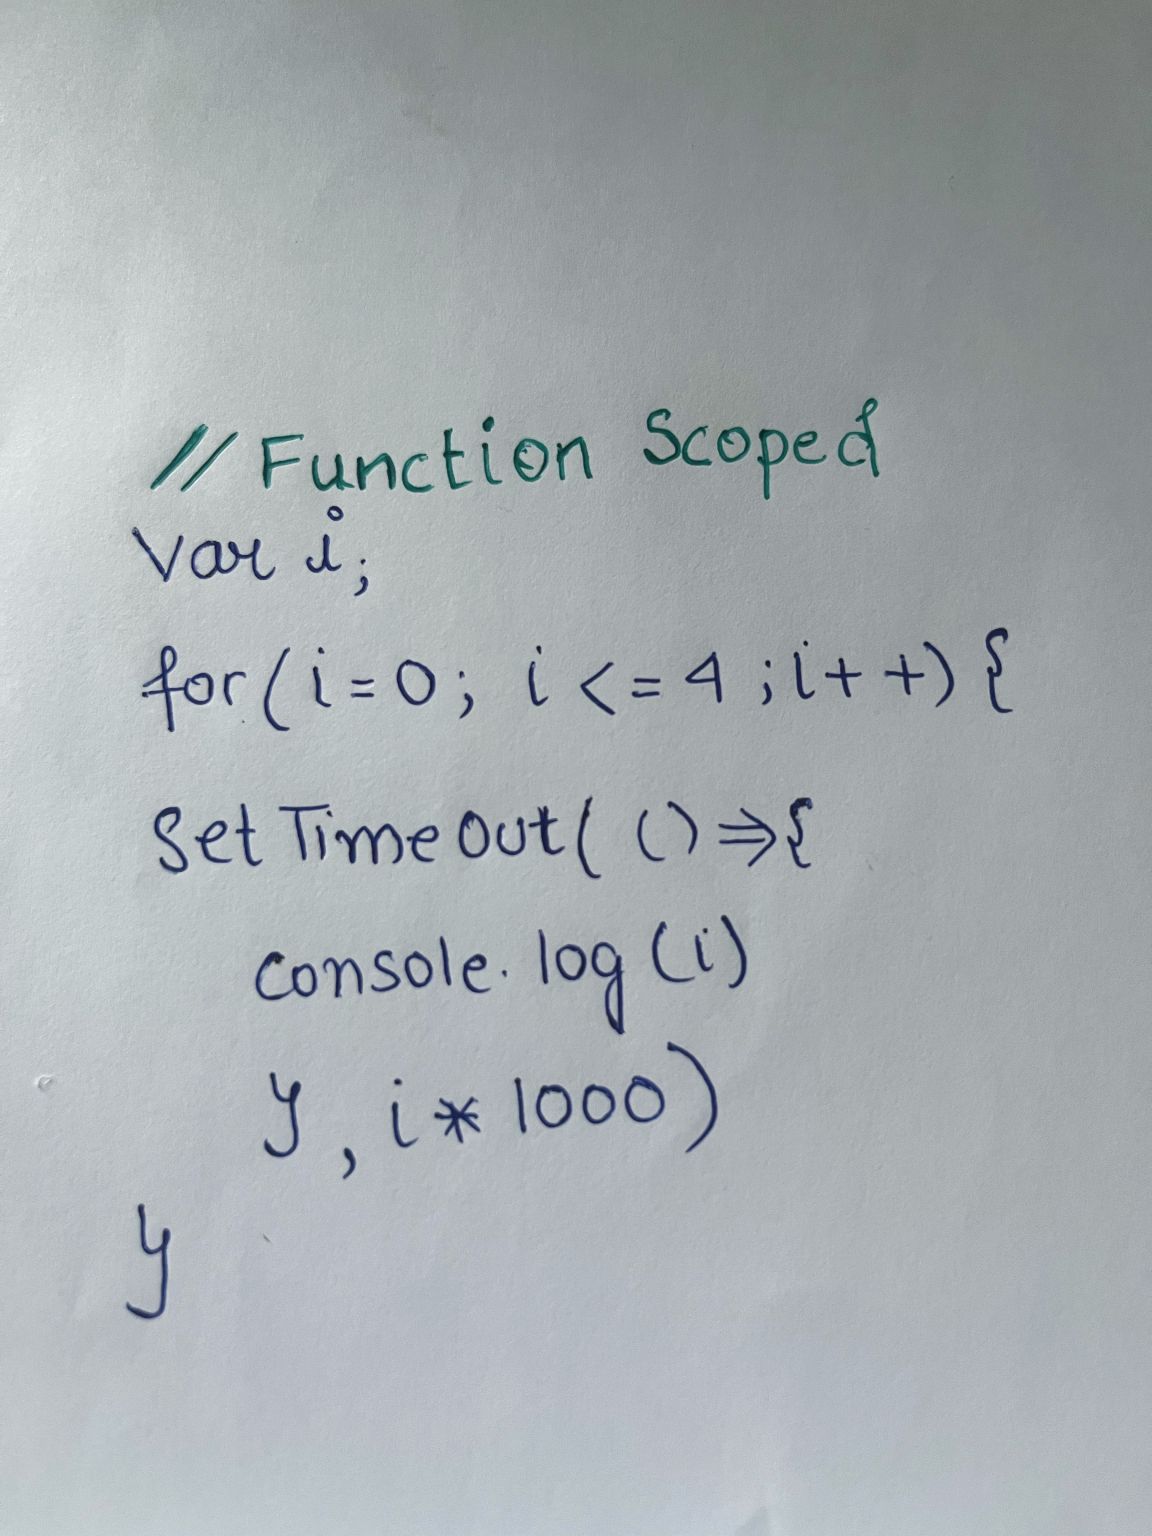 // Function Scoped
Var i;
for(i=0; i<=4;i++){
SetTimeOut( ()=>{
console.log(i)
}, i*1000)
}